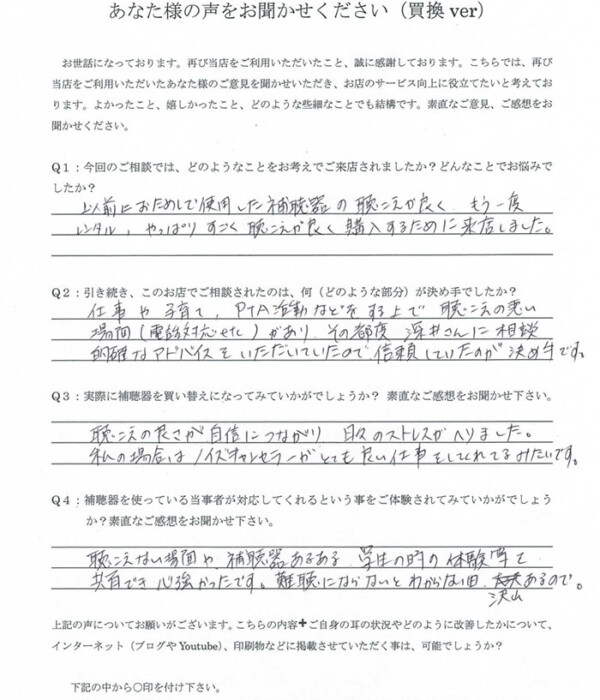 あなた様の声をお聞かせください（買換 ver）
お世話になっております。再び当店をご利用いただいたこと、誠に感謝しております。こちらでは、再び
当店をご利用いただいたあなた様のご意見を聞かせいただき、お店のサービス向上に役立てたいと考えてお
ります。よかったこと、嬉しかったこと、どのような些細なことでも結構です。素直なご意見、ご感想をお
聞かせください。
Q1：今回のご相談では、どのようなことをお考えでご来店されましたか？どんなことでお悩みで
したか？
以前におためしで使用した補聴器の聴こえが良く もう一度
レンタル、やっぱりすごく聴こえが良く購入するために来店しました。
Q2：引き続き、このお店でご相談されたのは、何（どのような部分）が決め手でしたか？
仕事や子育て、PTA活動などをする上で 聴こえの悪い
場面（電話対応etc）があり、その都度 深井さんに相談
的確なアドバイスをいただいていたので信頼していたのが決め手です。
Q3：実際に補聴器を買い替えになってみていかがでしょうか？ 素直なご感想をお聞かせ下さい。
聴こえの良さが自信につながり 日々のストレスがへりました。
私の場合はノイズキャンセラーがとても良い仕事をしてくれてるみたいです。
Q4：補聴器を使っている当事者が対応してくれるという事をご体験されてみていかがでしょう
か？素直なご感想をお聞かせ下さい。
聴こえない場面や、補聴器あるある 学生の時の体験等で
共有でき心強かったです。難聴にならないとわからない由 沢山あるので。
上記の声についてお願いがございます。こちらの内容＋ご自身の耳の状況やどのように改善したかについて、
インターネット（ブログや Youtube）、印刷物などに掲載させていただく事は、可能でしょうか？
下記の中から○印を付け下さい。